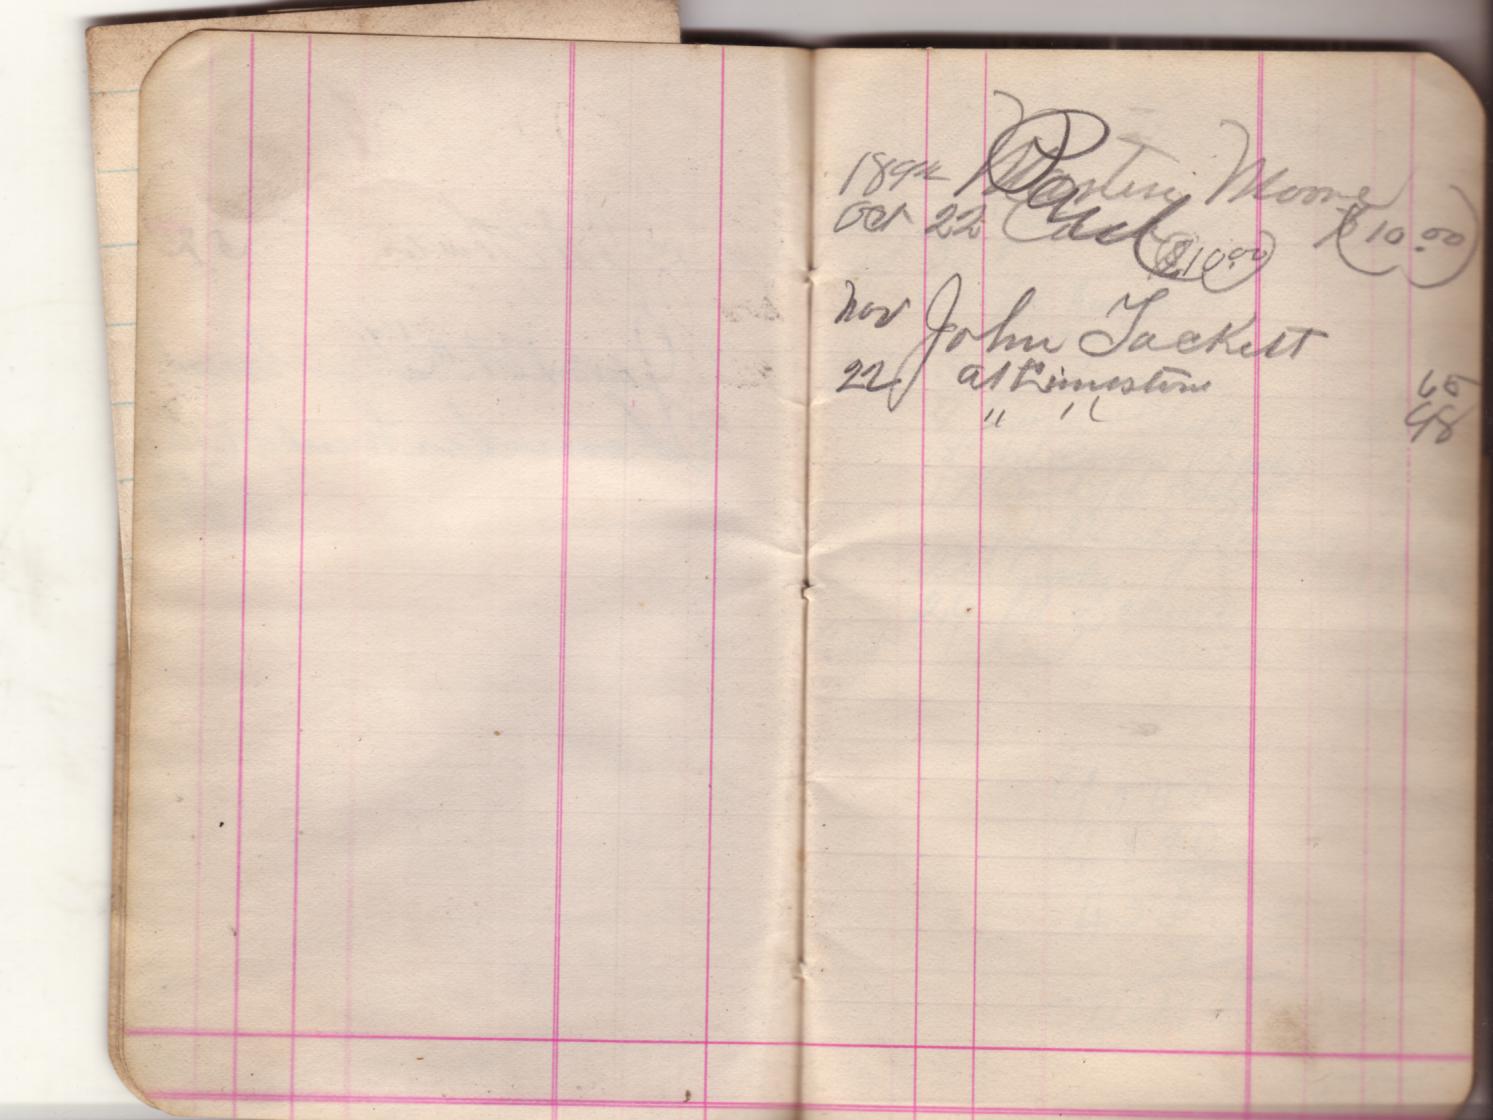 Martin Moore
Oct 22 Cash $10.00
Paid $10.00
Nov John Tackett
22 at Limestone 65
" " 48